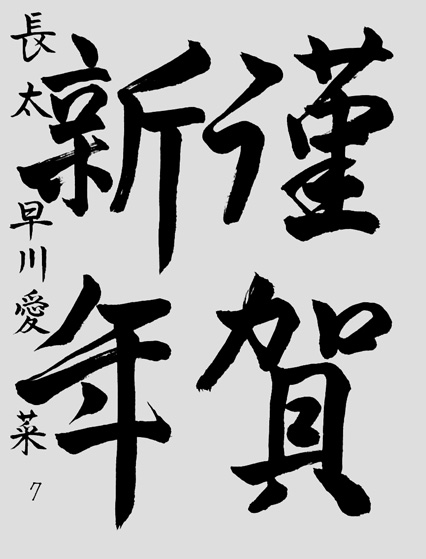 謹賀
新年
長太 早川愛菜
7